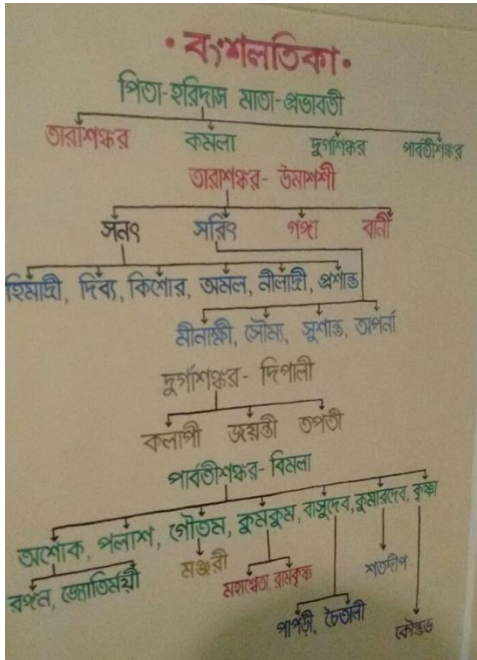 • বংশলতিকা •
পিতা-হরিদাস মাতা-প্রভাবতী
তারাশঙ্কর কমলা দুর্গাশঙ্কর পার্বতীশঙ্কর
তারাশঙ্কর - উমাশশী
সনৎ সরিৎ গঙ্গা বানী
হিমাদ্রী, দিব্য, কিশোর, অমল, নীলাদ্রী, প্রশান্ত
মীনাক্ষী, সৌম্য, সুশান্ত, অপর্না
দুর্গাশঙ্কর - দিপালী
কলাপী জয়ন্তী তপতী
পার্বতীশঙ্কর - বিমলা
অশোক, পলাশ, গৌতম, কুমকুম, বাসুদেব, কুমারদেব, কৃষ্ণা
রঙ্গন, জ্যোতির্ময়ী মঞ্জরী মহাশ্বেতা, রামকৃষ্ণ শতদীপ
পাপড়ী, চৈতালী কৌস্তভ